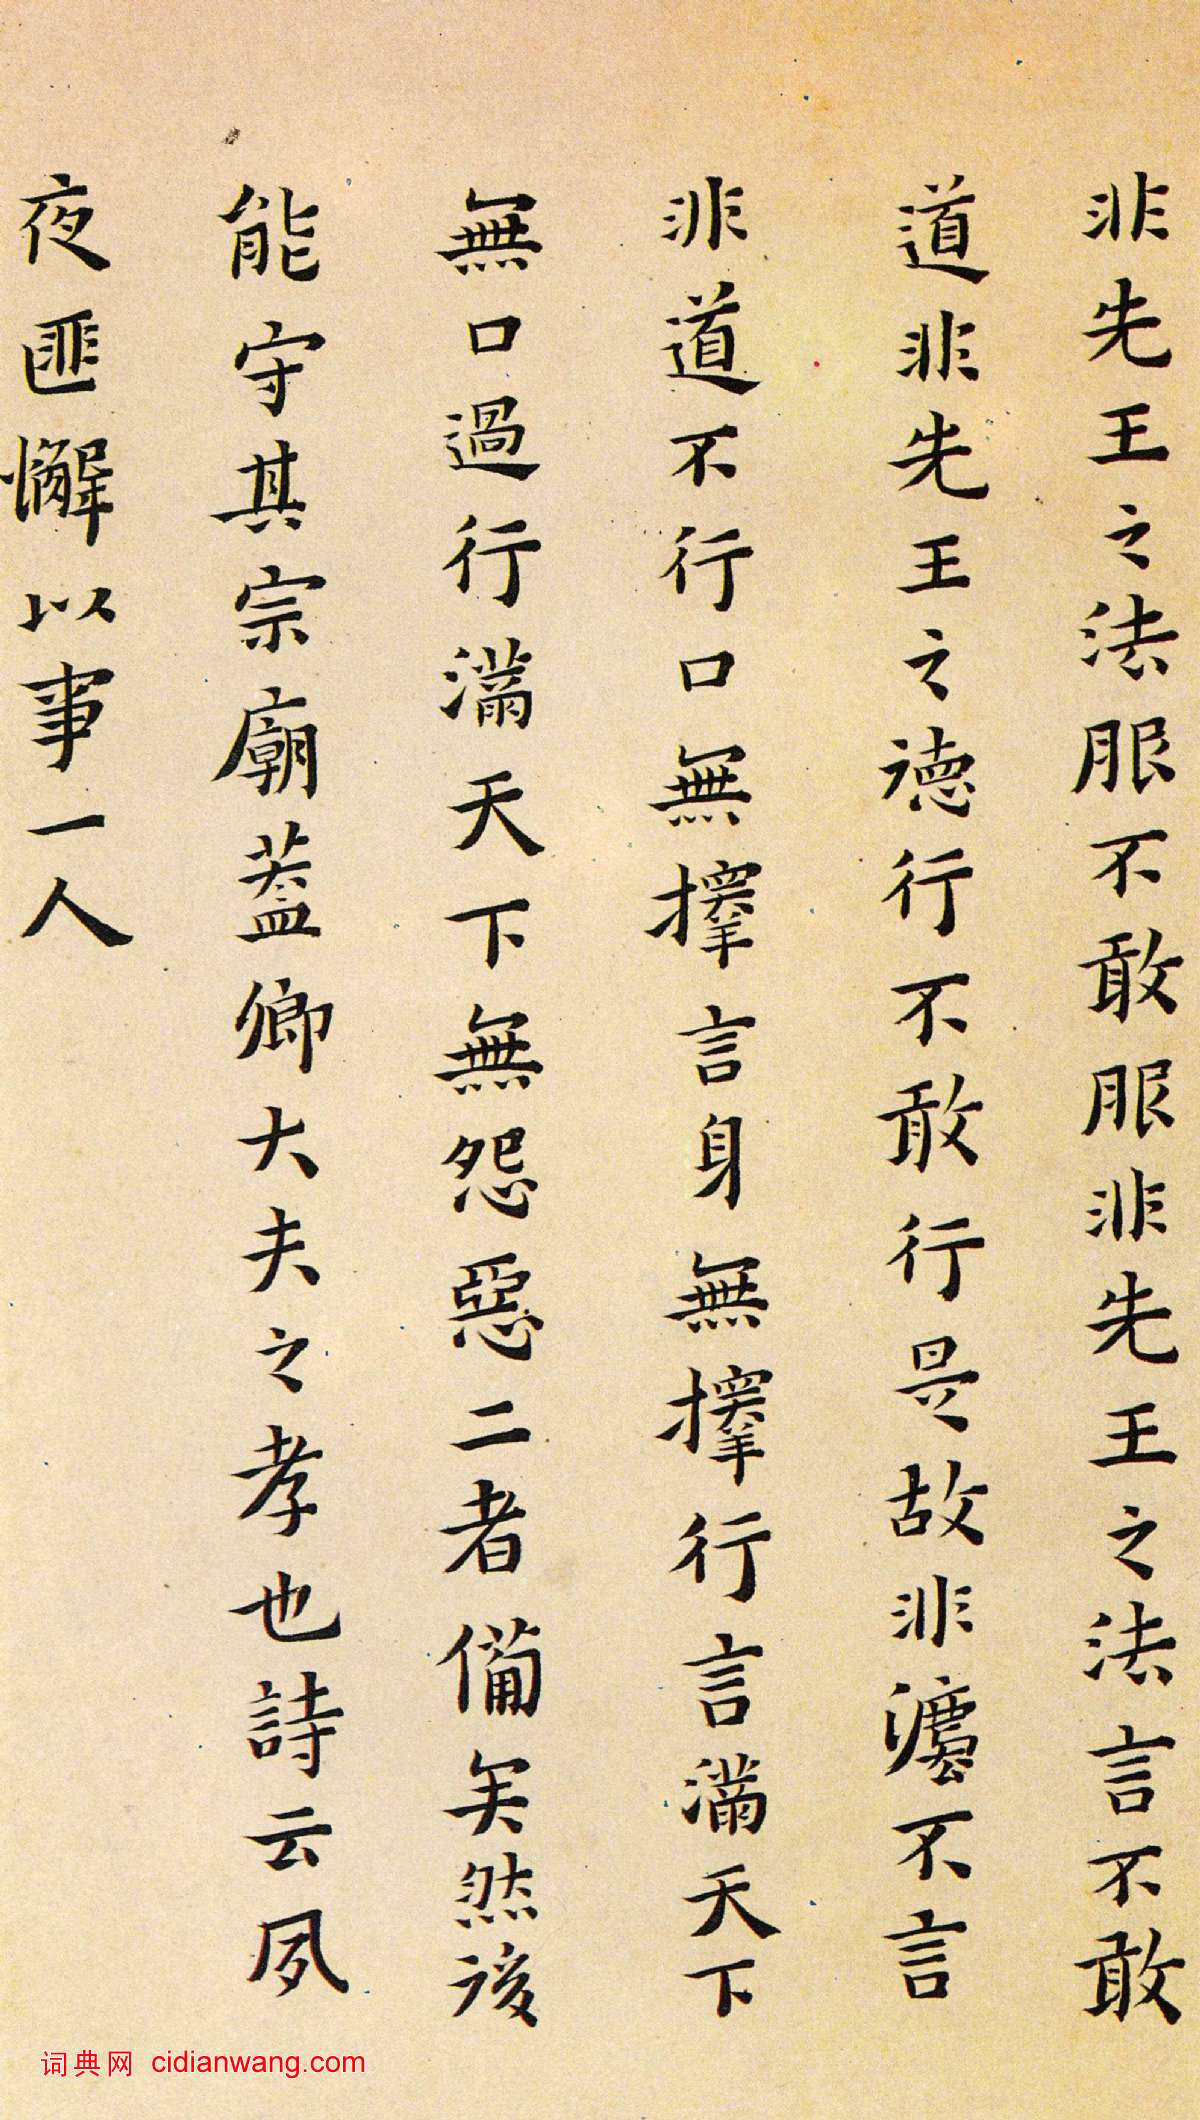 非先王之法服不敢服非先王之法言不敢
道非先王之德行不敢行是故非灋不言
非道不行口無擇言身無擇行言滿天下
無口過行滿天下無怨惡二者備矣然後
能守其宗廟蓋卿大夫之孝也詩云夙
夜匪懈以事一人
词典网 cidianwang.com